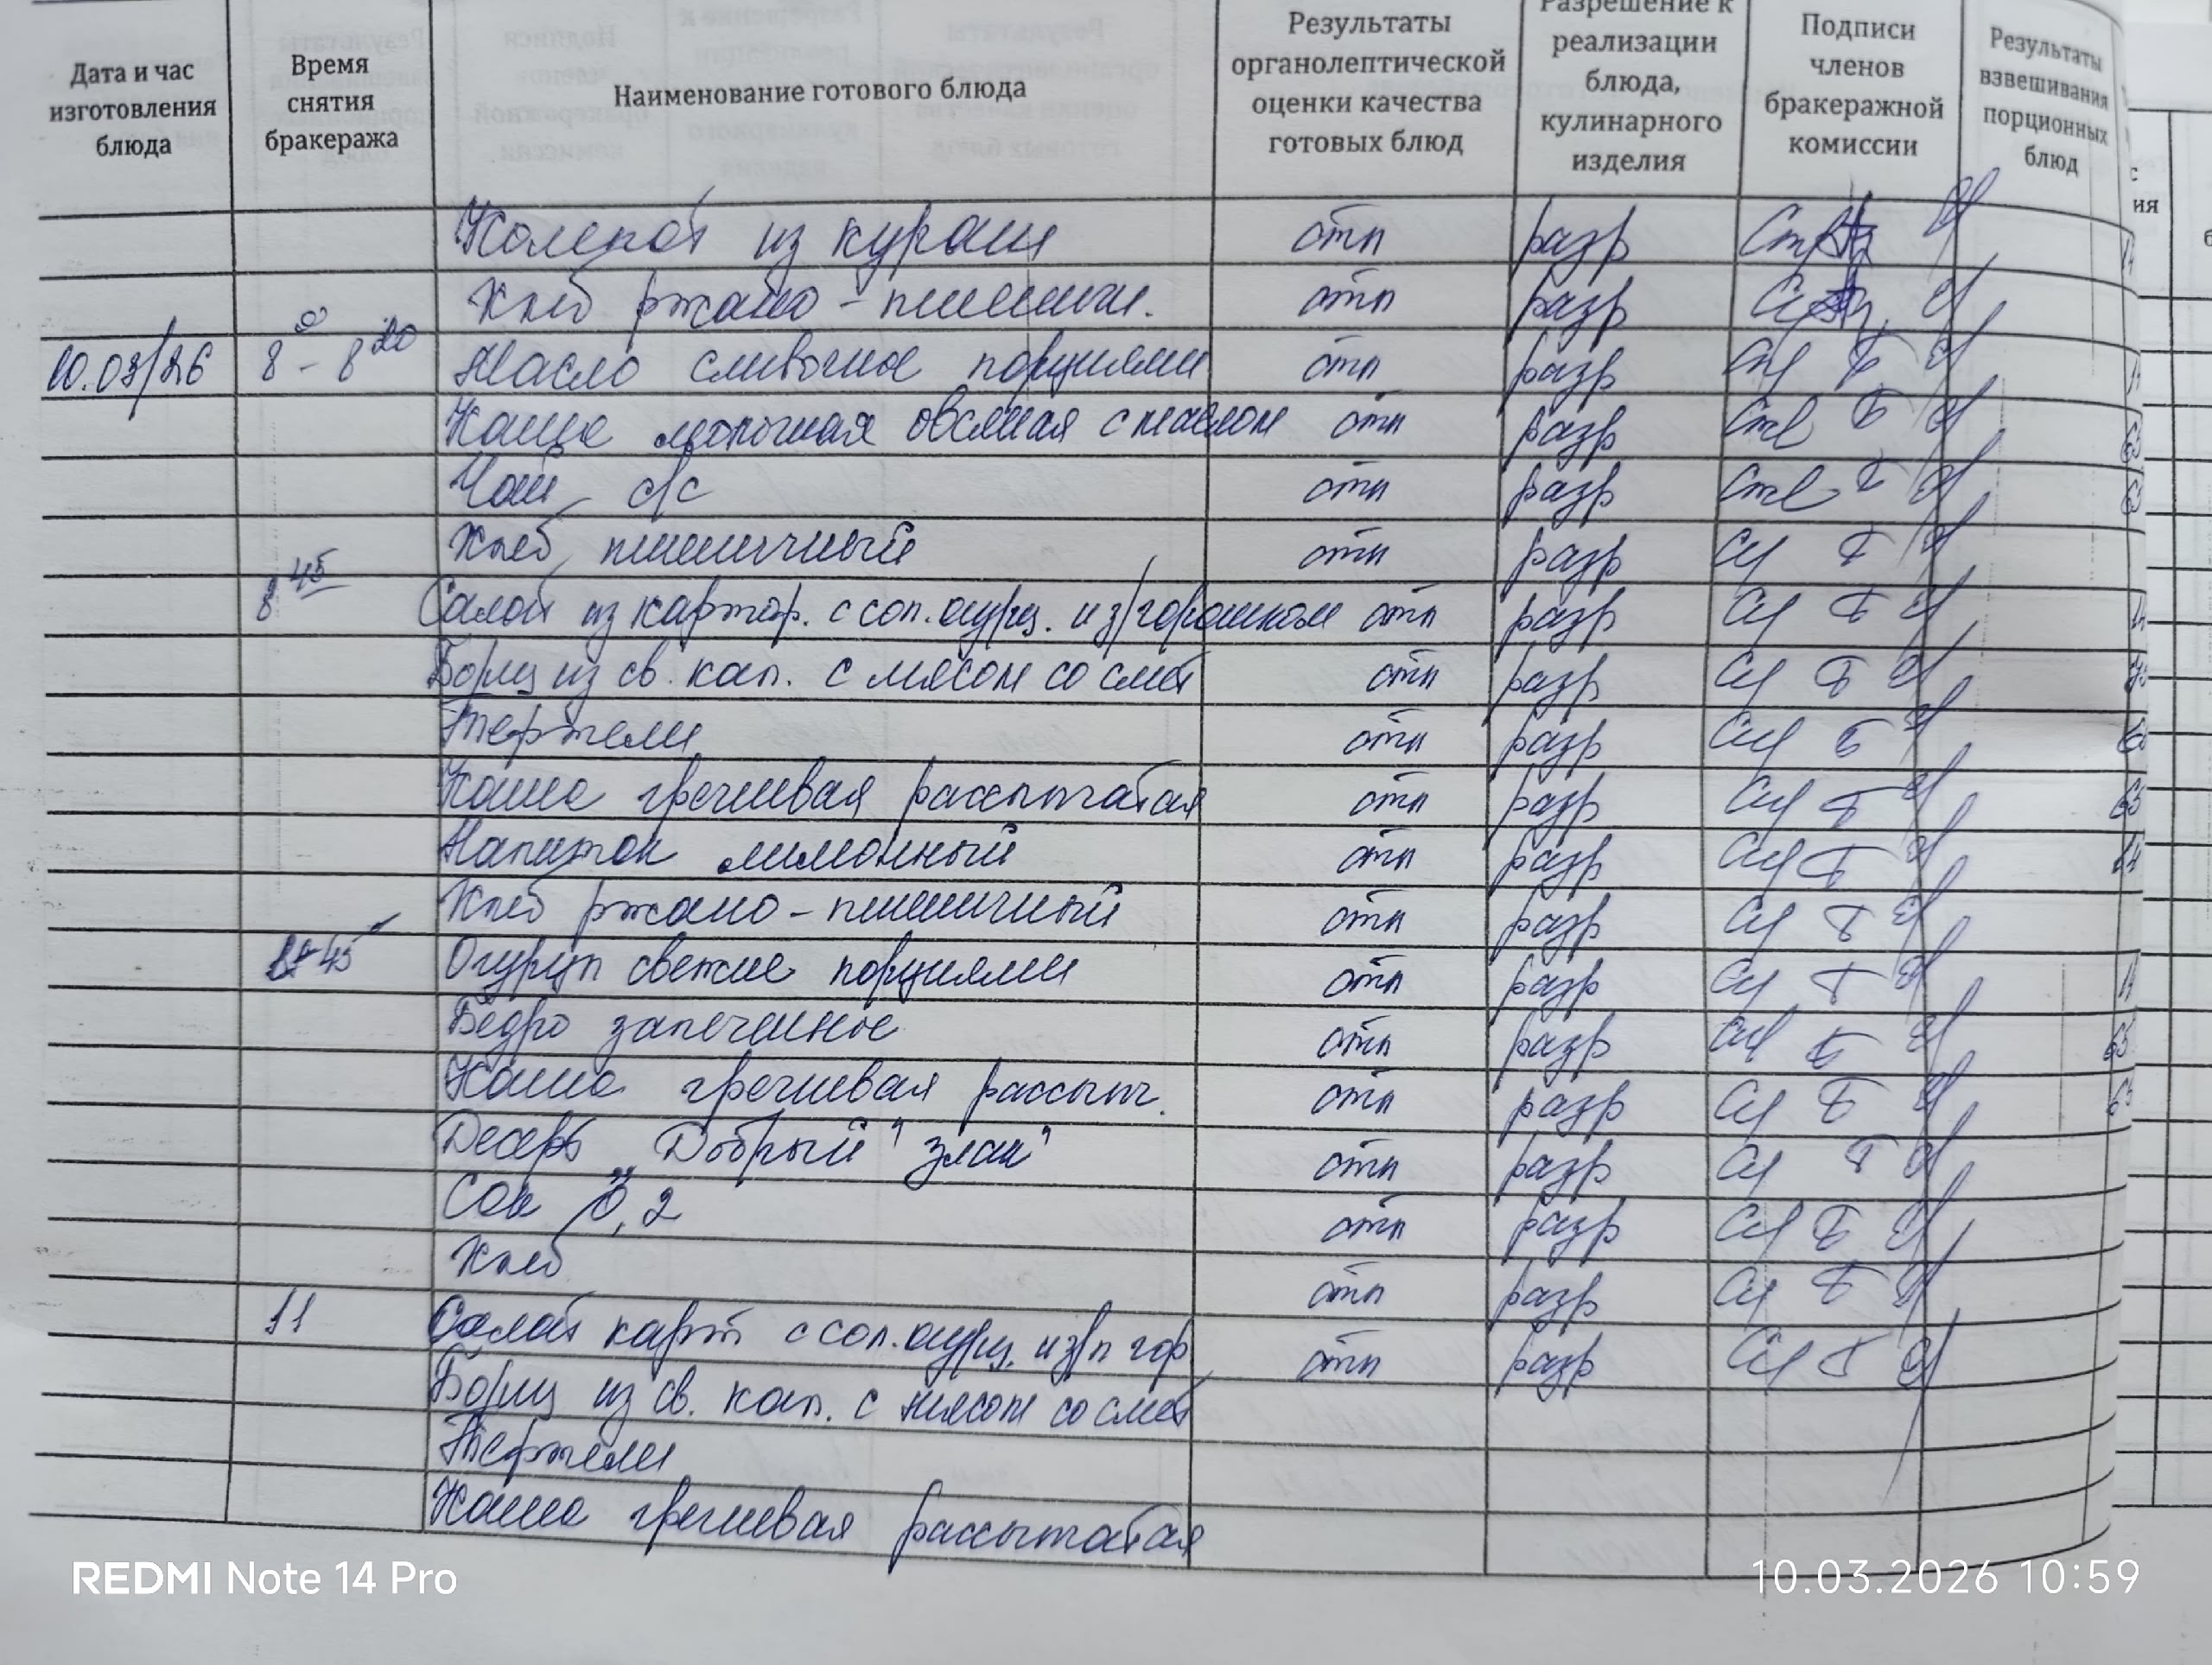 Дата и час изготовления блюда
Время снятия бракеража
Наименование готового блюда
Результаты органолептической оценки качества готовых блюд
Разрешение к реализации блюда, кулинарного изделия
Подписи членов бракеражной комиссии
Результаты взвешивания порционных блюд
Компот из кураги отп разр
Хлеб ржано-пшеничн. отп разр
10.03/26 8 - 8 20 Масло сливочное порциями отп разр
Каша молочная овсяная с маслом отп разр
Чай с/с отп разр
Хлеб пшеничный отп разр
8 45 Салат из картоф. с сол. огурц. и з/горошком отп разр
Борщ из св. кап. с мясом со смет отп разр
Тефтели отп разр
Каша гречневая рассыпчатая отп разр
Напиток лимонный отп разр
Хлеб ржано-пшеничный отп разр
45 Огурцы свежие порциями отп разр
Бедро запеченное отп разр
Каша гречневая рассыпч. отп разр
Десерт "Добрый злак" отп разр
Сок 0,2 отп разр
Хлеб отп разр
11 Салат карт с сол. огурц. и з/п гор отп разр
Борщ из св. кап. с мясом со смет
Тефтели
Каша гречневая рассыпчатая
REDMI Note 14 Pro
10.03.2026 10:59